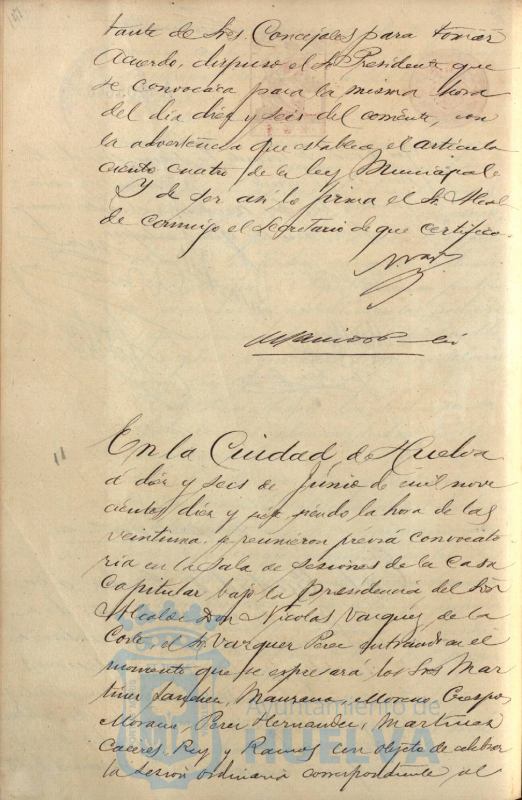 tante de Sres. Concejales para tomar
Acuerdo, dispuso el Sr. Presidente que
se convocara para la misma hora
del dia diez y seis del corriente, con
la advertencia que establece el articulo
ciento cuatro de la ley Municipal
Y de ser asi lo firma el Sr. Alcal
de conmigo el Secretario de que certifico.
11
En la Ciudad de Huelva
á diez y seis de Junio de mil nove
cientos diez y siete siendo la hora de las
veintiuna, se reunieron previa convocato
ria en la Sala de Sesiones de la Casa
Capitular bajo la Presidencia del Señor
Alcalde Don Nicolas Vazquez de la
Corte, el Sr. Vazquez Perez entrando en el
momento que se expresará los Sres Mar
tinez Sanchez, Manzano, Moreno, Crespo,
Morano, Perez Hernandez, Martinez
Caceres, Ruy y Ramos con objeto de celebrar
la sesion ordinaria correspondiente al
Ayuntamiento de
HUELVA